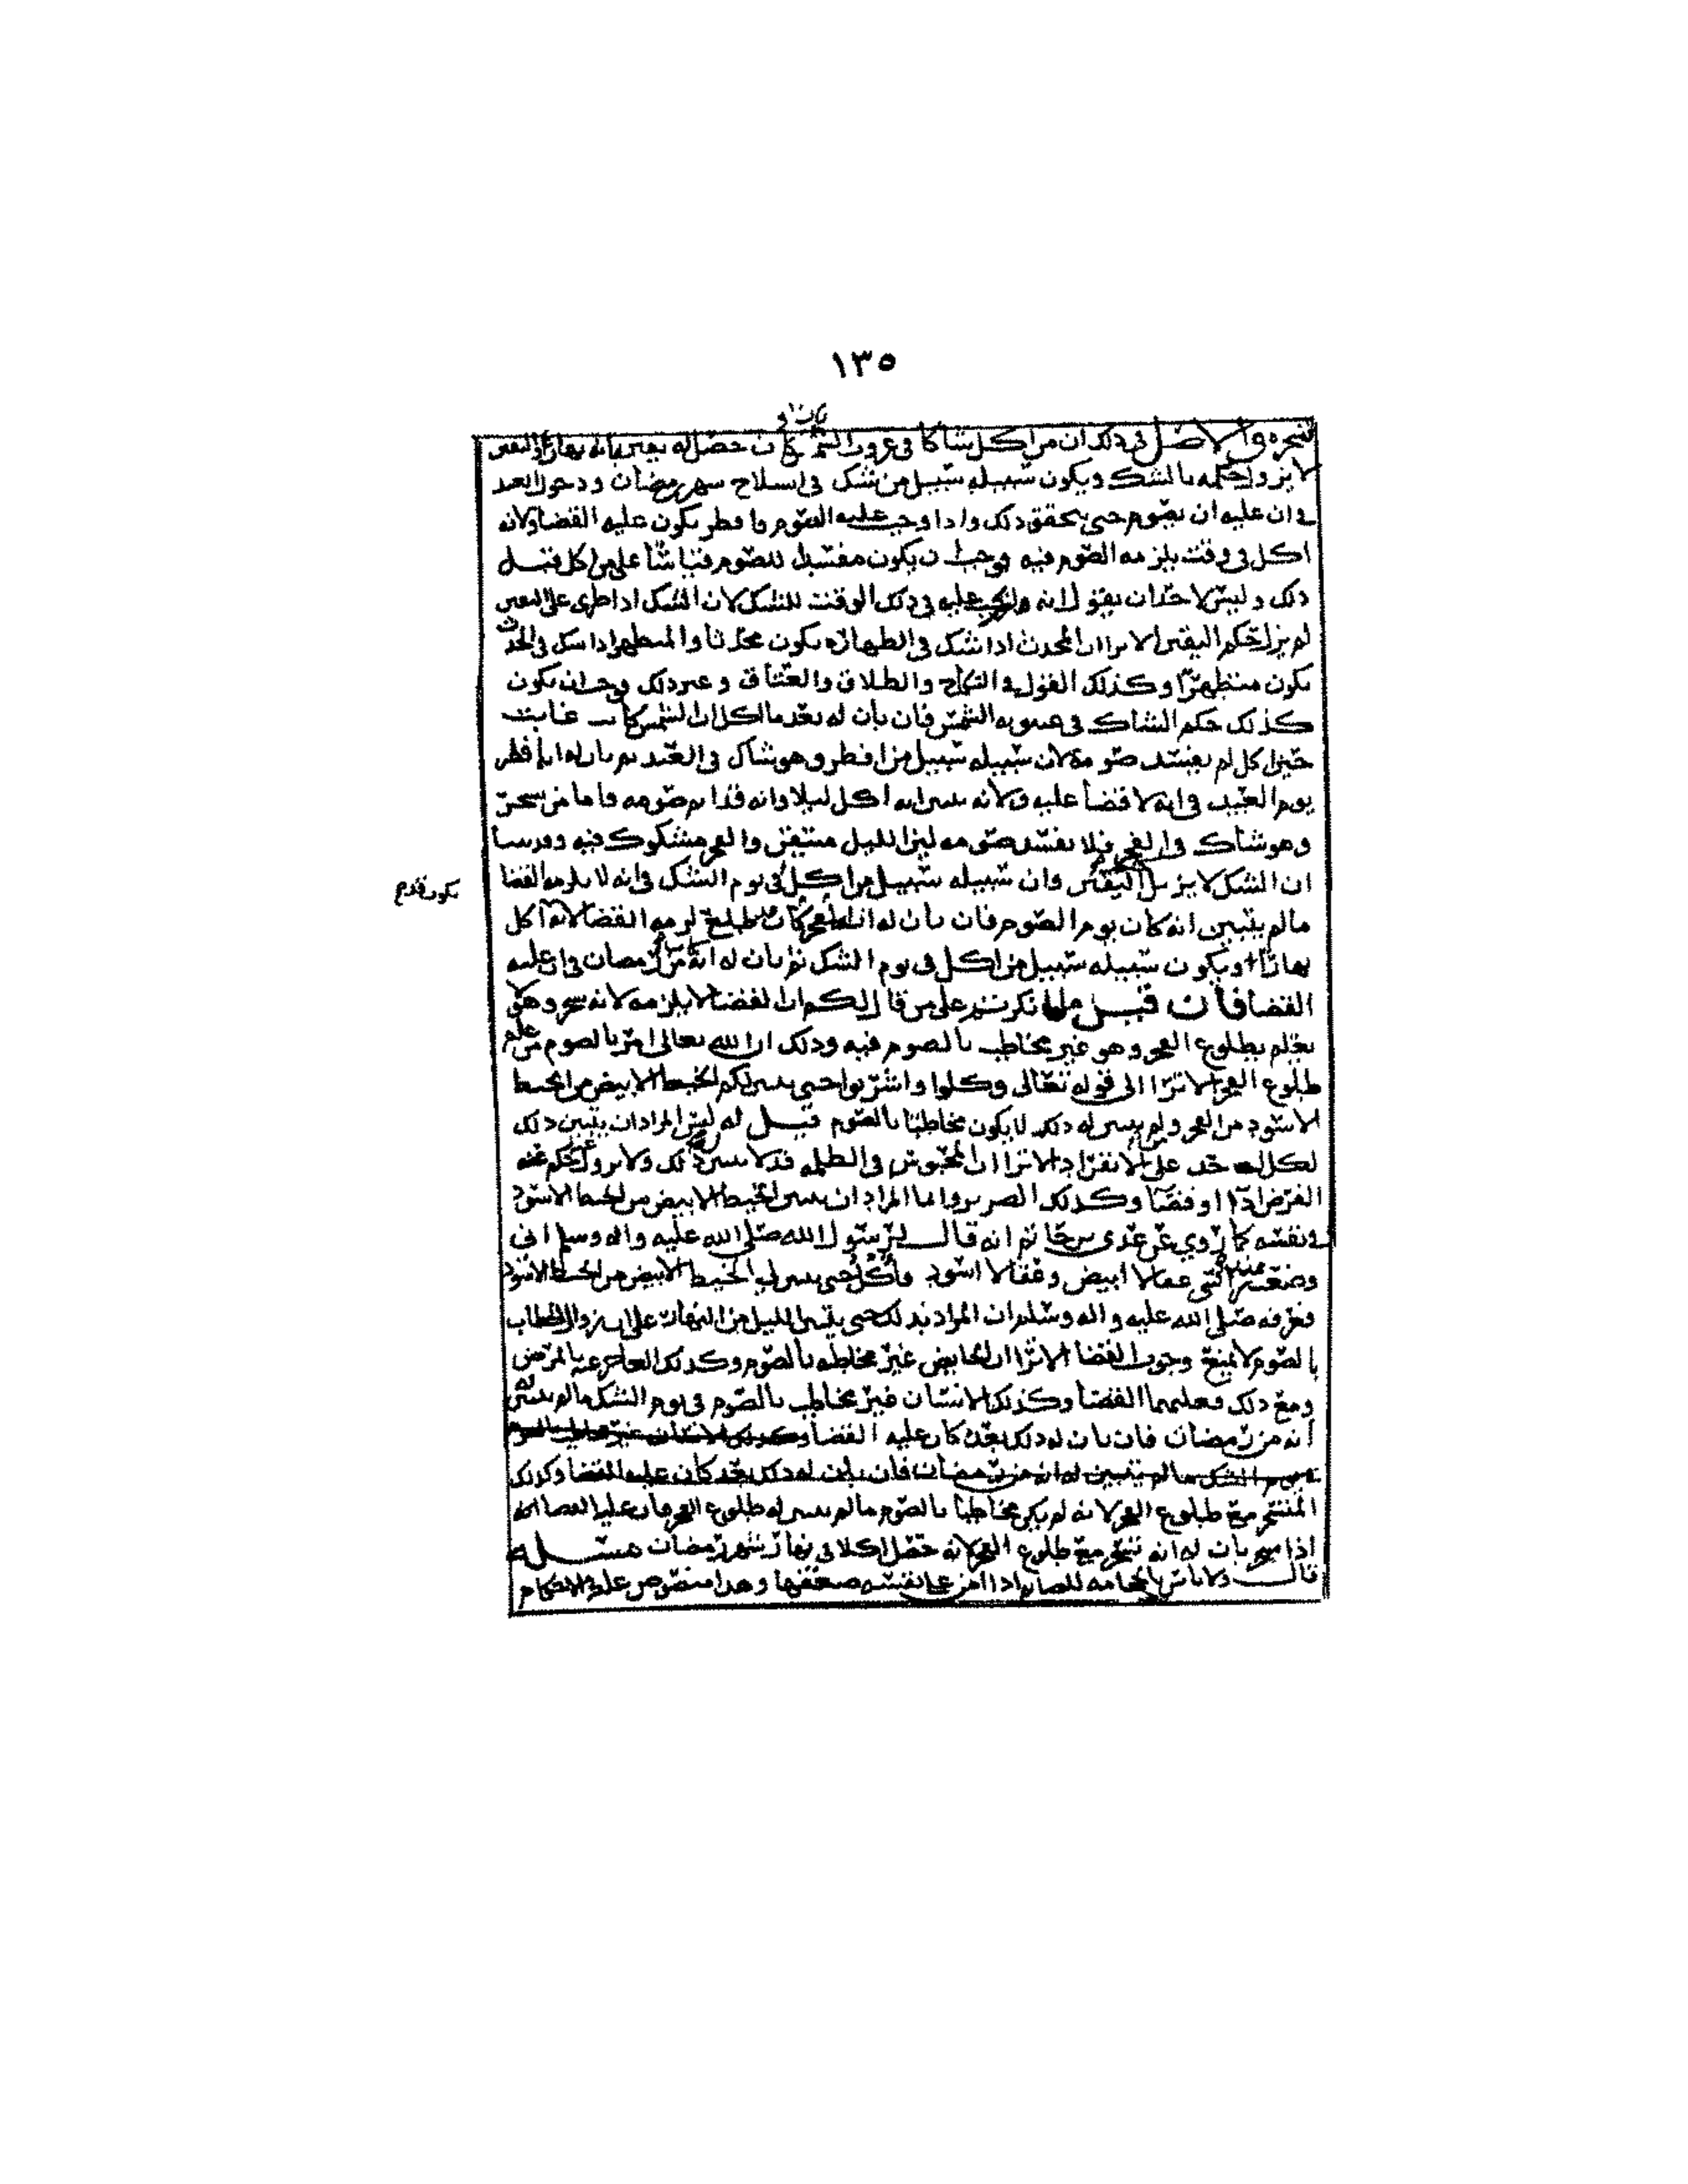 ١٣٥
والاصل في ذلك ان من اكل شاكا في غروب الشمس حصل له يقين بانه نهار واليقين
لا يزول حكمه بالشك ويكون سبيله سبيل من شك في انسلاخ شهر رمضان ودخول العيد
في ان عليه ان يصوم حتى يتحقق ذلك واذا وجب عليه الصوم وافطر يكون عليه القضا ولانه
اكل في وقت يلزمه الصوم فيه فوجب ان يكون مفسدا للصوم قياسا على من اكل قبل
ذلك وليس لاحد ان يقول انه لم يجب عليه في ذلك الوقت للشك لان الشك اذا طرى على اليقين
لم يزل حكم اليقين الا ترا ان المحدث اذا شك في الطهارة يكون محدثا والمتطهر اذا شك في الحدث
يكون متطهرا وكذلك القول في النكاح والطلاق والعتاق وغير ذلك فوجب ان يكون
كذلك حكم الشاك في غيبوبة الشمس فان بان له بعد ما اكل ان الشمس كانت غابت
حين اكل لم يفسد صومه لان سبيله سبيل من افطر وهو شاك في العيد ثم بان له انه افطر
يوم العيد في انه لا قضا عليه ولانه تبين انه اكل ليلا وانه قد اتم صومه فاما من تسحر
وهو شاك في الفجر فلا يفسد صومه لان الليل متيقن والفجر مشكوك فيه وقد بينا
ان الشك لا يزيل اليقين وان سبيله سبيل من اكل في يوم الشك في انه لا يلزمه القضا
مالم يتبين انه كان يوم الصوم فان بان له ان الفجر كان قد طلع لزمه القضا لانه اكل
نهارا ويكون سبيله سبيل من اكل في يوم الشك ثم بان له انه من رمضان في ان عليه
القضا فان قيل ما انكرتم على من قال لكم ان القضا لا يلزمه لانه تسحر وهو لا
يعلم بطلوع الفجر وهو غير مخاطب بالصوم فيه وذلك ان الله تعالى امر بالصوم من علم
طلوع الفجر الا ترا الى قوله تعالى وكلوا واشربوا حتى يتبين لكم الخيط الابيض من الخيط
الاسود من الفجر ولم يتبين له ذلك لا يكون مخاطبا بالصوم قيل له ليس المراد ان يتبين ذلك
لكل احد على الانفراد الا ترا ان المحبوس في الظلمة قد لا يتبين ذلك ولا يزول حكم عنه
الفرض ادا او قضا وكذلك الضرير وانما المراد ان يتبين الخيط الابيض من الخيط الاسود
في نفسه كما روي عن عدي بن حاتم انه قال لرسول الله صلى الله عليه واله وسلم اني
وضعت عقالا ابيض وعقالا اسود فاكل حتى يتبين لي الخيط الابيض من الخيط الاسود
فعرفه صلى الله عليه واله وسلم ان المراد بذلك حتى يتبين الليل من النهار على ان زوال الخطاب
بالصوم لا يمنع وجوب القضا الا ترا ان الحايض غير مخاطبة بالصوم وكذلك العاجز عنه بالمرض
ومع ذلك فعليهما القضا وكذلك الانسان غير مخاطب بالصوم في يوم الشك مالم يتبين له
انه من رمضان فان بان له ذلك بعد كان عليه القضا وكذلك الانسان غير مخاطب بالصوم
في يوم الشك مالم يتبين له انه من رمضان فان بان له ذلك بعد كان عليه القضا وكذلك
المتسحر مع طلوع الفجر لانه لم يكن مخاطبا بالصوم مالم يتبين له طلوع الفجر فان عليه القضا
اذا بان له انه تسحر مع طلوع الفجر لانه حصل اكلا في نهار شهر رمضان مسئلة
قال ولا باس بالحجامة للصايم اذا امن على نفسه ضعفها وهذا منصوص عليه في الاحكام